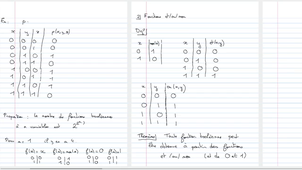 x y z p(x,y,z)
0 0 0 0
0 0 1 0
0 1 0 0
0 1 1 0
1 0 0 0
1 0 1 0
1 1 0 0
1 1 1 0
Proposition : le nombre de fonctions booléennes
à n variables est 2^{2^n}
Pour n = 1 il y en a 4
f(x) = x f(x) = non(x) f(x) = 0 f(x) = 1
x non(x)
0 1
1 0
x y
0 0
0 1
1 0
1 1
x y ou(x,y)
0 0 0
0 1 1
1 0 1
1 1 1
Théorème : Toute fonction booléenne peut
être obtenue à partir des fonctions
et / ou / non (et de 0 et 1)